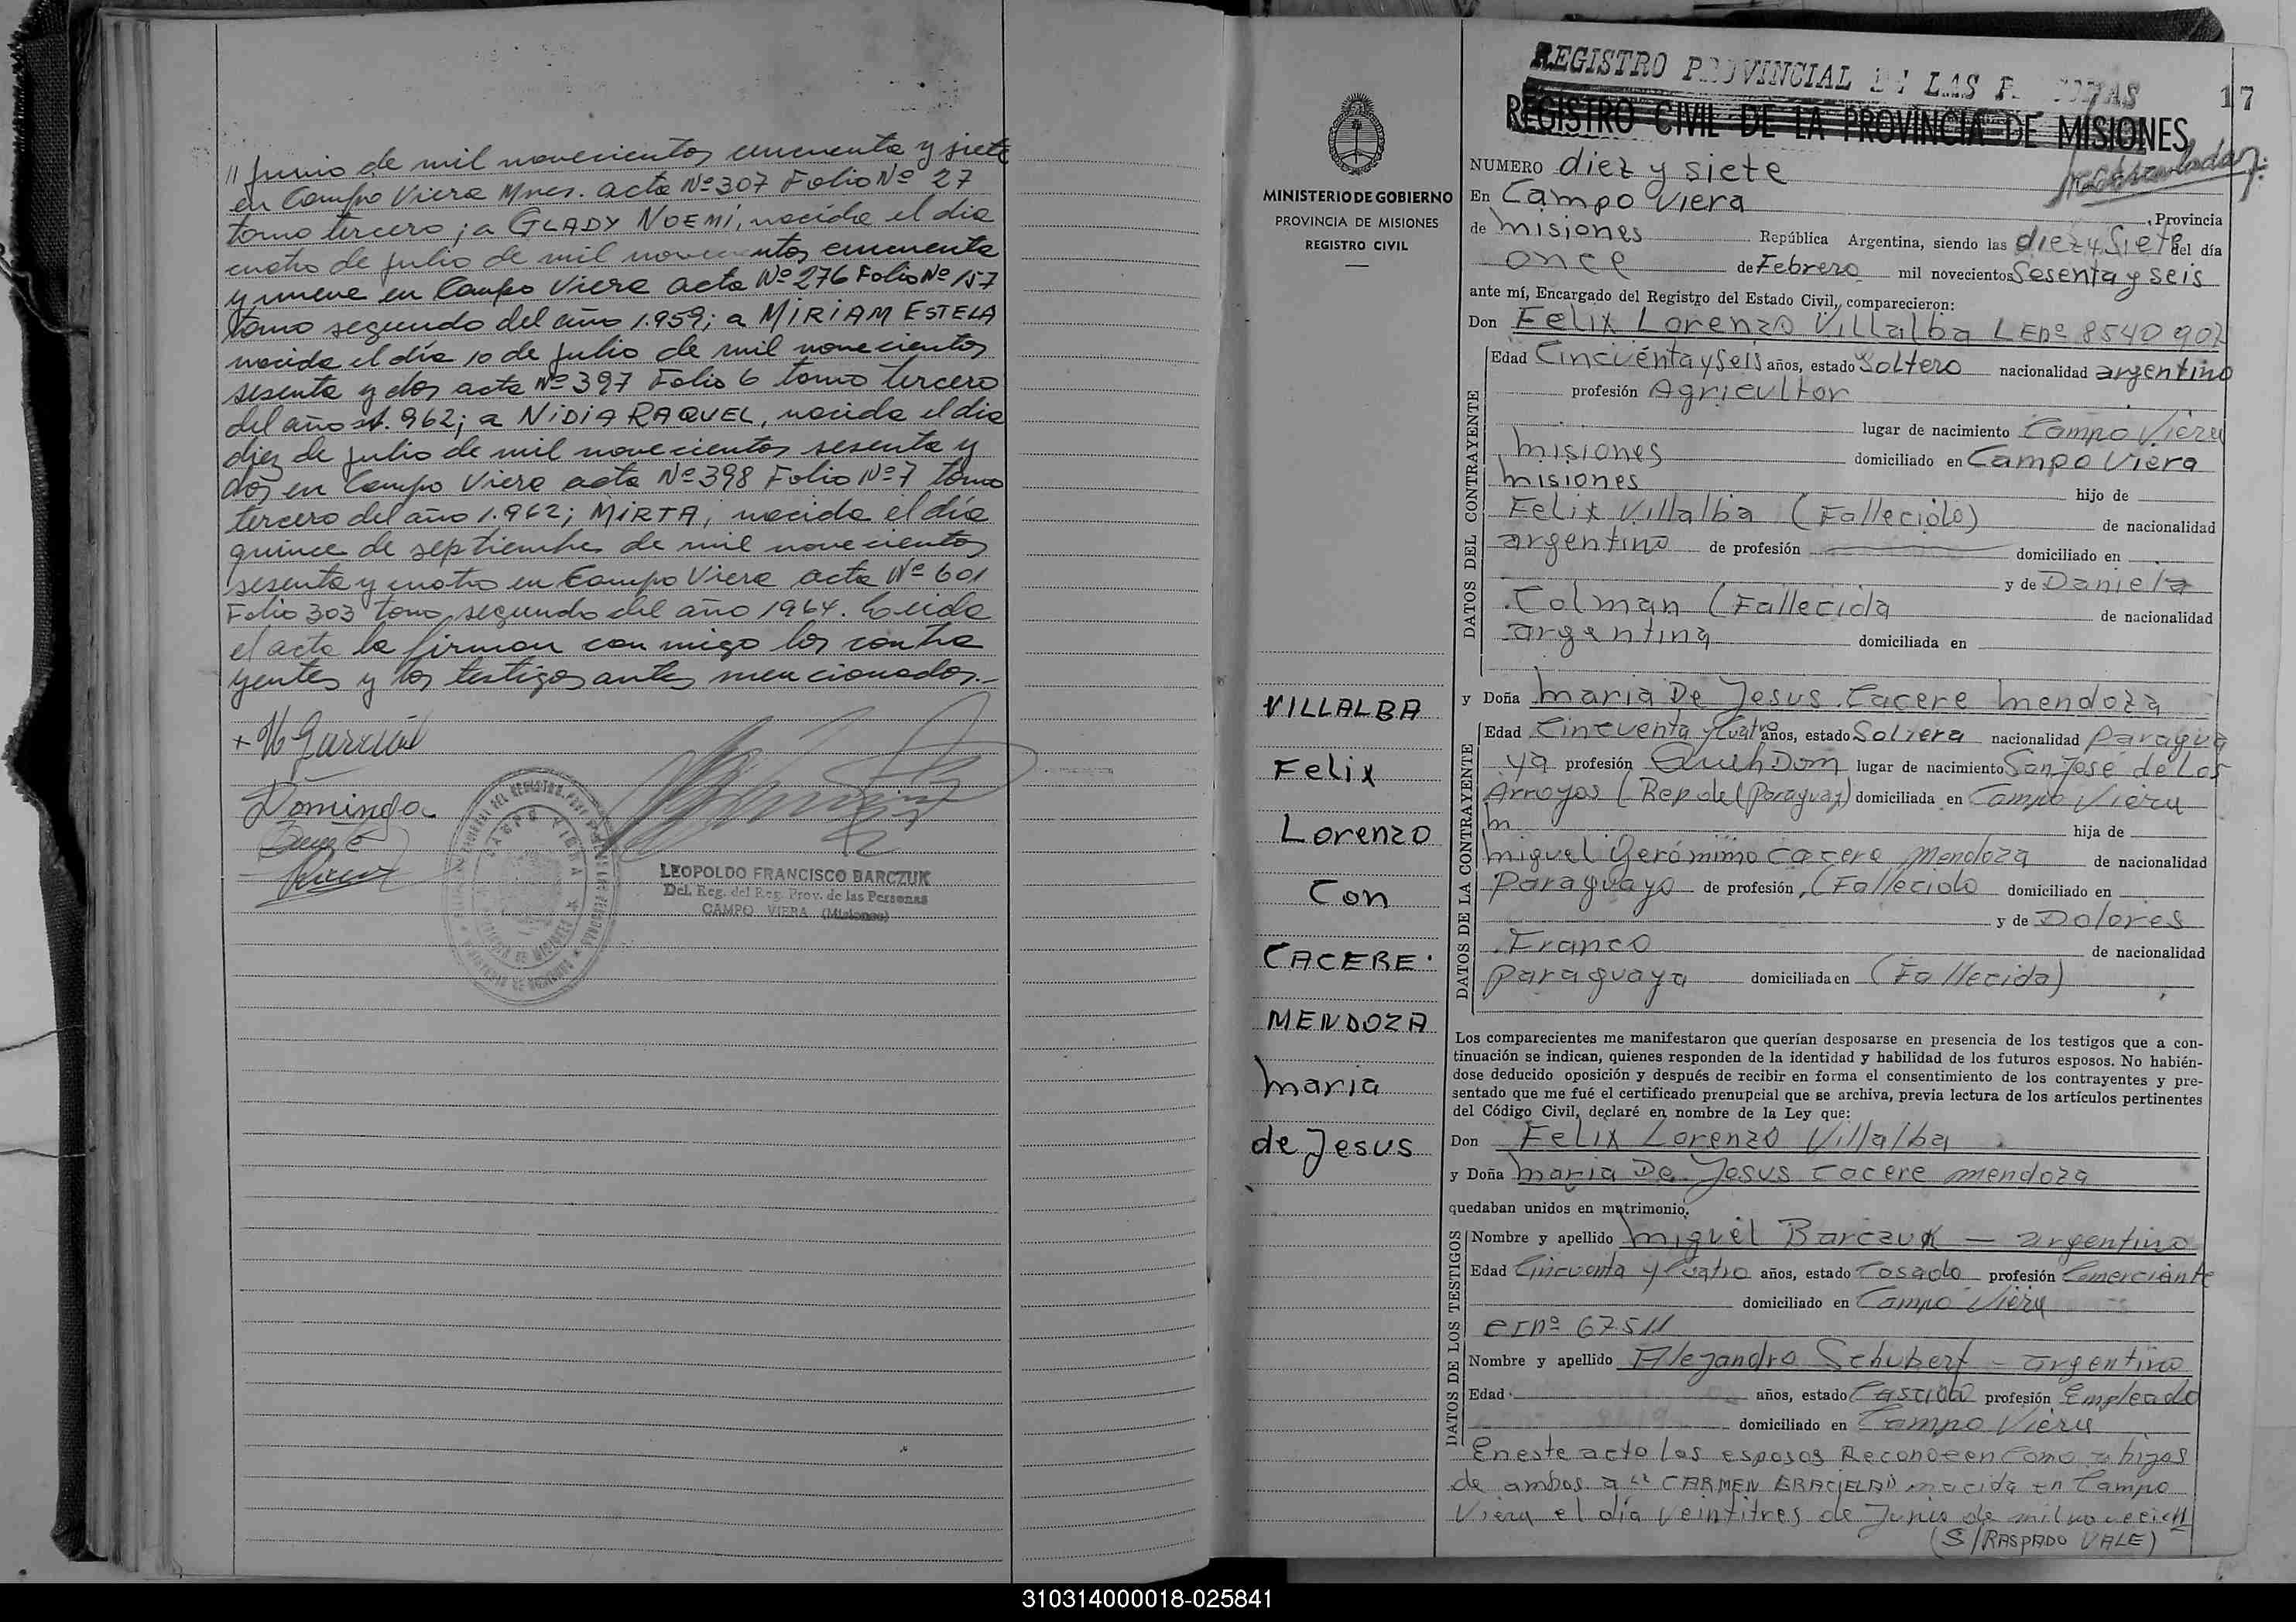 // Junio de mil novecientos cincuenta y siete
en Campo Viera Mnes. acta Nº 307 Folio Nº 27
tomo tercero; a GLADY NOEMI, nacida el dia
cuatro de julio de mil novecientos cincuenta
y nueve en Campo Viera acta Nº 276 Folio Nº 157
tomo segundo del año 1.959; a MIRIAM ESTELA
nacida el día 10 de julio de mil novecientos
sesenta y dos acta Nº 397 Folio 6 tomo tercero
del año 1.962; a NIDIA RAQUEL, nacida el dia
diez de julio de mil novecientos sesenta y
dos en Campo Viera acta Nº 398 Folio Nº 7 tomo
tercero del año 1.962; MIRTA, nacida el día
quince de septiembre de mil novecientos
sesenta y cuatro en Campo Viera acta Nº 601
Folio 303 tomo segundo del año 1964. Leida
el acta la firman con migo los contra
yentes y los testigos antes mencionados.-
Dominga
LEOPOLDO FRANCISCO BARCZUK
Del. Reg. del Reg. Prov. de las Personas
CAMPO VIERA (Misiones)
MINISTERIO DE GOBIERNO
PROVINCIA DE MISIONES
REGISTRO CIVIL
VILLALBA
Felix
Lorenzo
Con
CACERE
MENDOZA
Maria
de Jesus
REGISTRO PROVINCIAL DE LAS PERSONAS
17
REGISTRO CIVIL DE LA PROVINCIA DE MISIONES
NUMERO diez y siete
En Campo Viera, Provincia
de Misiones República Argentina, siendo las diez y Siete del día
once de Febrero mil novecientos Sesenta y seis
ante mí, Encargado del Registro del Estado Civil, comparecieron:
Don Felix Lorenzo Villalba LEnº 8540 902
DATOS DEL CONTRAYENTE
Edad Cincuenta y Seis años, estado Soltero nacionalidad argentino
profesión Agricultor
lugar de nacimiento Campo Viera
Misiones domiciliado en Campo Viera
Misiones hijo de
Felix Villalba (Fallecido) de nacionalidad
argentino de profesión domiciliado en
y de Daniela
Colman (Fallecida de nacionalidad
argentina domiciliada en
y Doña Maria De Jesus Cacere Mendoza
DATOS DE LA CONTRAYENTE
Edad Cincuenta y Cuatro años, estado Soltera nacionalidad Paragua
ya profesión Queh Dom lugar de nacimiento San Jose de Los
Arroyos (Rep del Paraguay) domiciliada en Campo Viera
M hija de
Miguel Gerónimo Cacere Mendoza de nacionalidad
Paraguayo de profesión (Fallecido domiciliado en
y de Dolores
Franco de nacionalidad
Paraguaya domiciliada en (Fallecida)
Los comparecientes me manifestaron que querían desposarse en presencia de los testigos que a con-
tinuación se indican, quienes responden de la identidad y habilidad de los futuros esposos. No habién-
dose deducido oposición y después de recibir en forma el consentimiento de los contrayentes y pre-
sentado que me fué el certificado prenupcial que se archiva, previa lectura de los artículos pertinentes
del Código Civil, declaré en nombre de la Ley que:
Don Felix Lorenzo Villalba
y Doña Maria De Jesus Cacere Mendoza
quedaban unidos en matrimonio.
DATOS DE LOS TESTIGOS
Nombre y apellido Miguel Barczuk — argentino
Edad Cincuenta y Cuatro años, estado Casado profesión Comerciante
domiciliado en Campo Viera
CInº 67511
Nombre y apellido Alejandro Schubert - argentino
Edad años, estado Casado profesión Empleado
domiciliado en Campo Viera
En este acto los esposos Reconocen Como a hijos
de ambos a "CARMEN GRACIELA" nacida en Campo
Viera el día veintitres de Junio de mil novecien//
(S/RASPADO VALE)
310314000018-025841